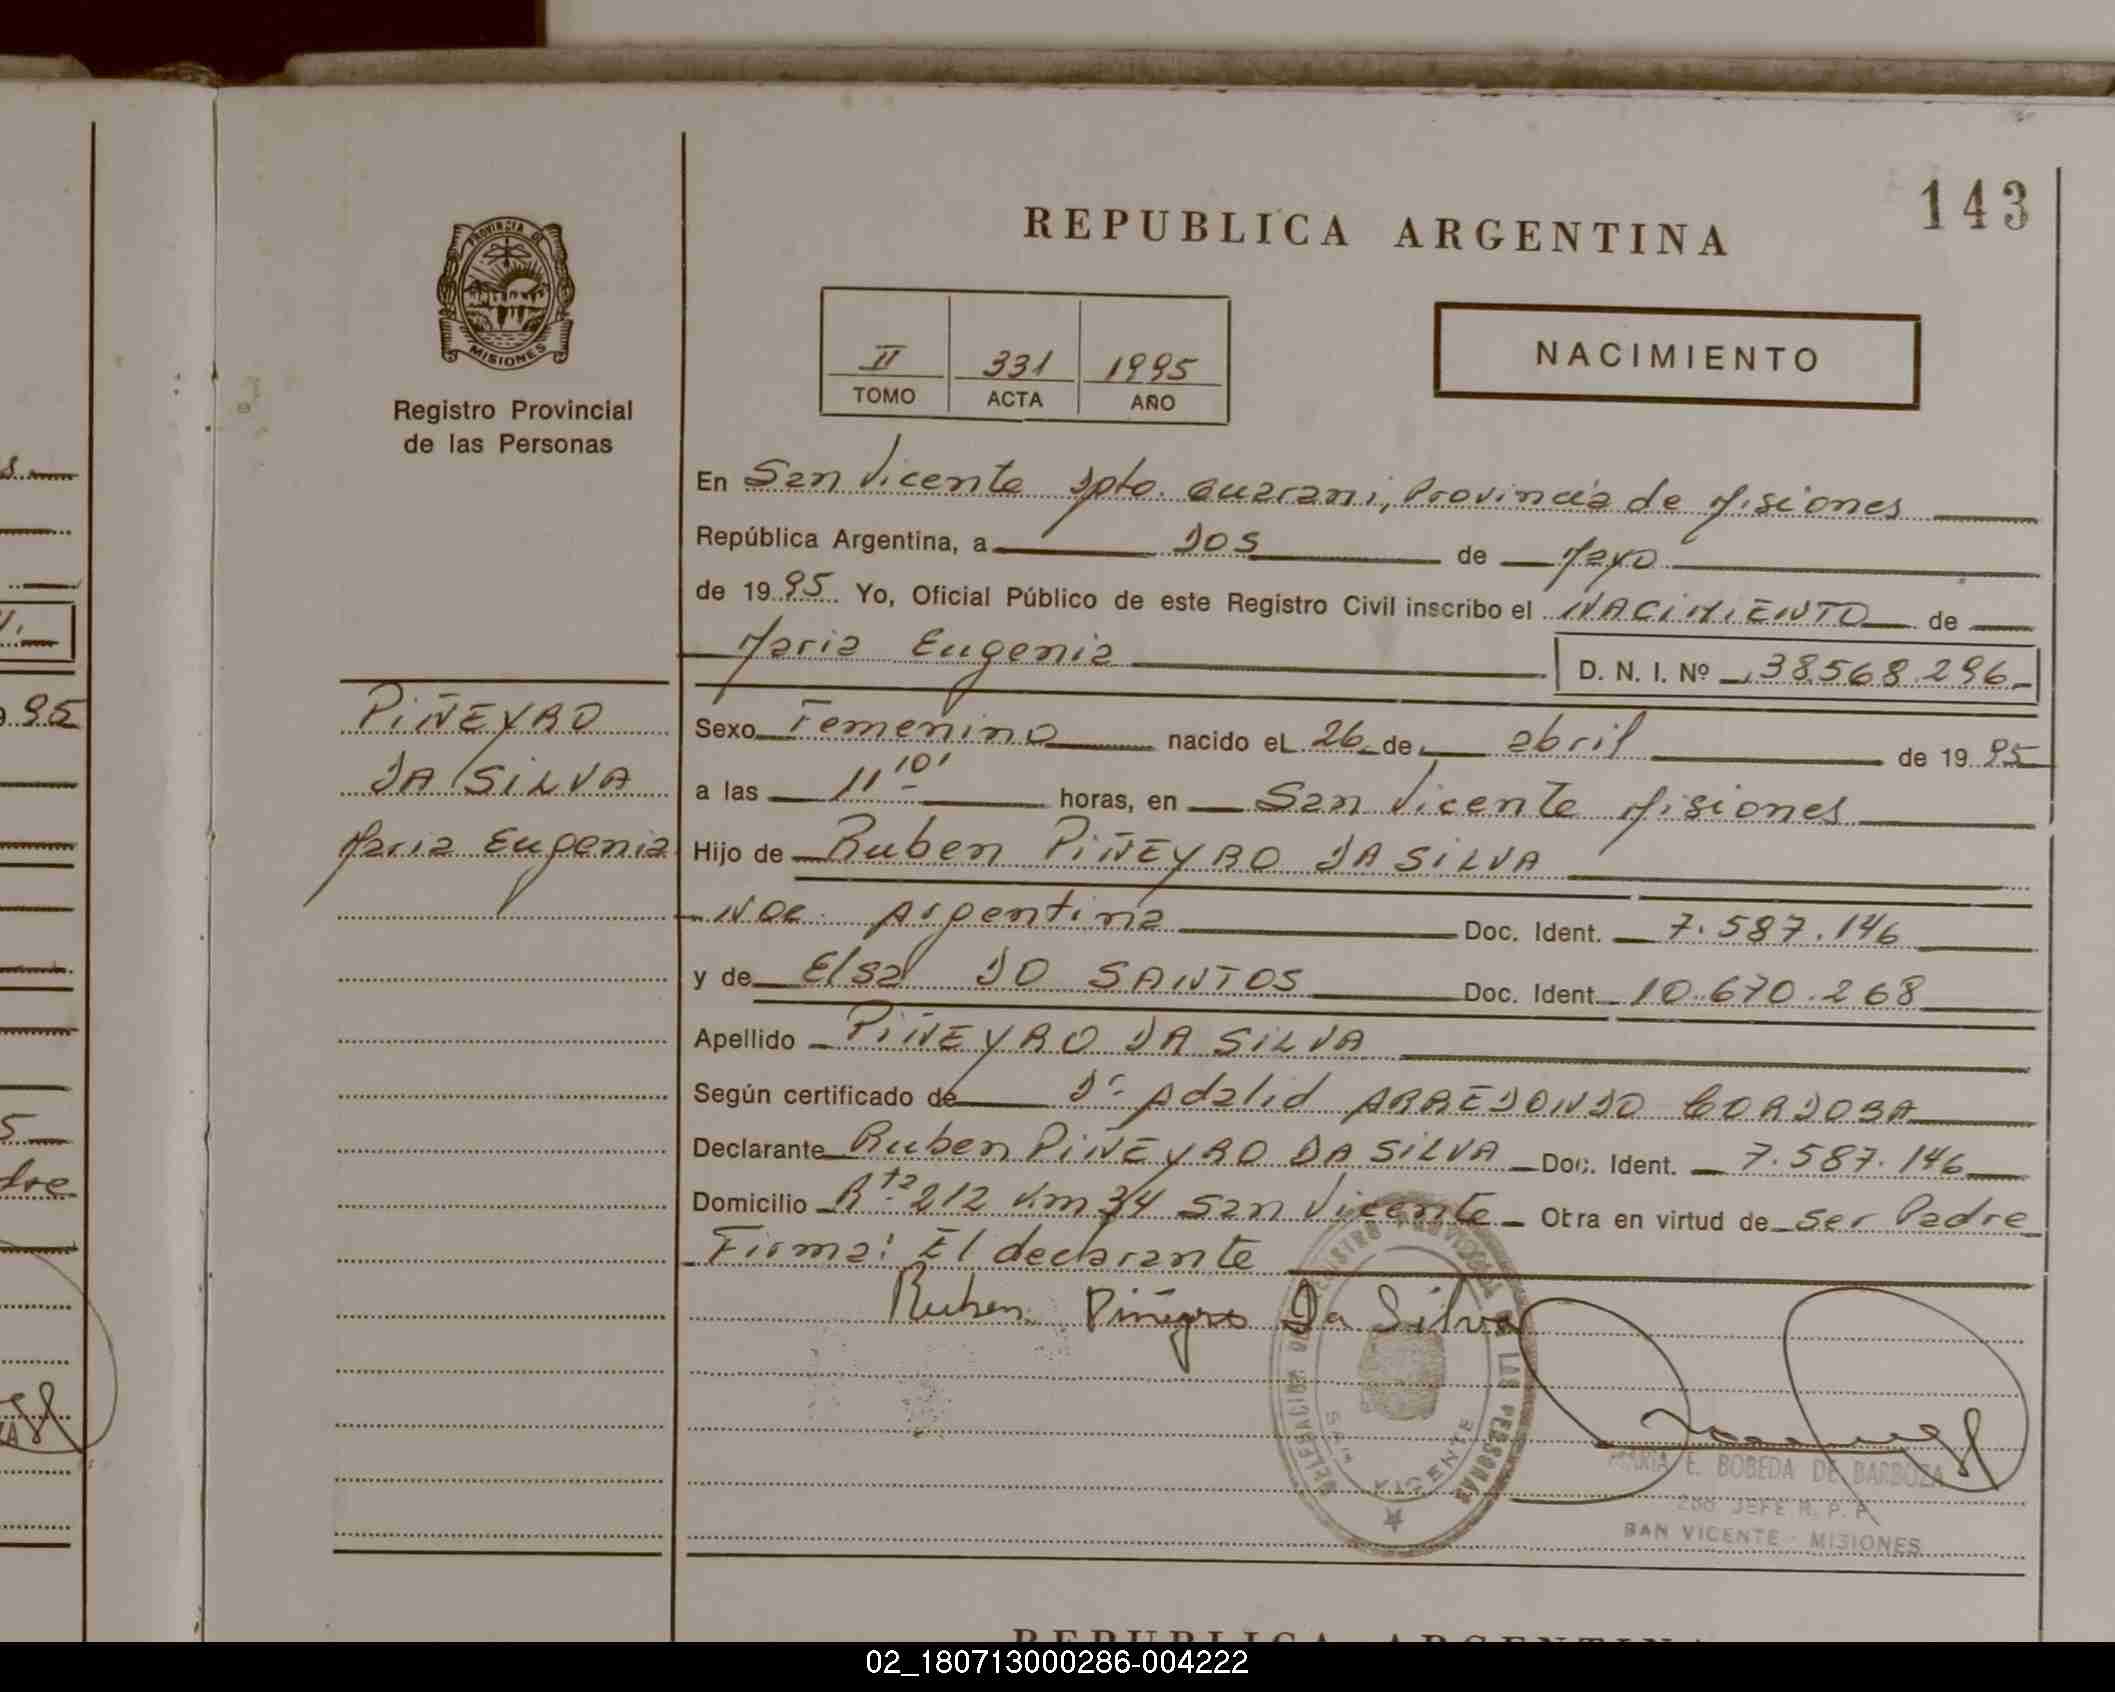 143
REPUBLICA ARGENTINA
PROVINCIA DE
MISIONES
Registro Provincial
de las Personas
II 331 1995
TOMO ACTA AÑO
NACIMIENTO
En San Vicente Dpto. Guarani, Provincia de Misiones
República Argentina, a DOS de Mayo
de 1995 Yo, Oficial Público de este Registro Civil inscribo el NACIMIENTO de
Maria Eugenia D. N. I. Nº 38.568.296
PIÑEYRO
DA SILVA
Maria Eugenia
Sexo Femenino nacido el 26 de abril de 1995
a las 11 10' horas, en San Vicente Misiones
Hijo de Ruben PIÑEYRO DA SILVA
Nac. Argentina Doc. Ident. 7.587.146
y de Elsa DO SANTOS Doc. Ident. 10.670.268
Apellido PIÑEYRO DA SILVA
Según certificado de Dr. Adalid ARREDONDO CORDOBA
Declarante Ruben PIÑEYRO DA SILVA Doc. Ident. 7.587.146
Domicilio Rta 212 Km 34 San Vicente Otra en virtud de ser Padre
Firma: El declarante
Ruben Piñeyro Da Silva
SAN VICENTE
MARIA E. BOBEDA DE BARBOZA
JEFE R. P. P.
SAN VICENTE - MISIONES
REPUBLICA ARGENTINA
02_180713000286-004222